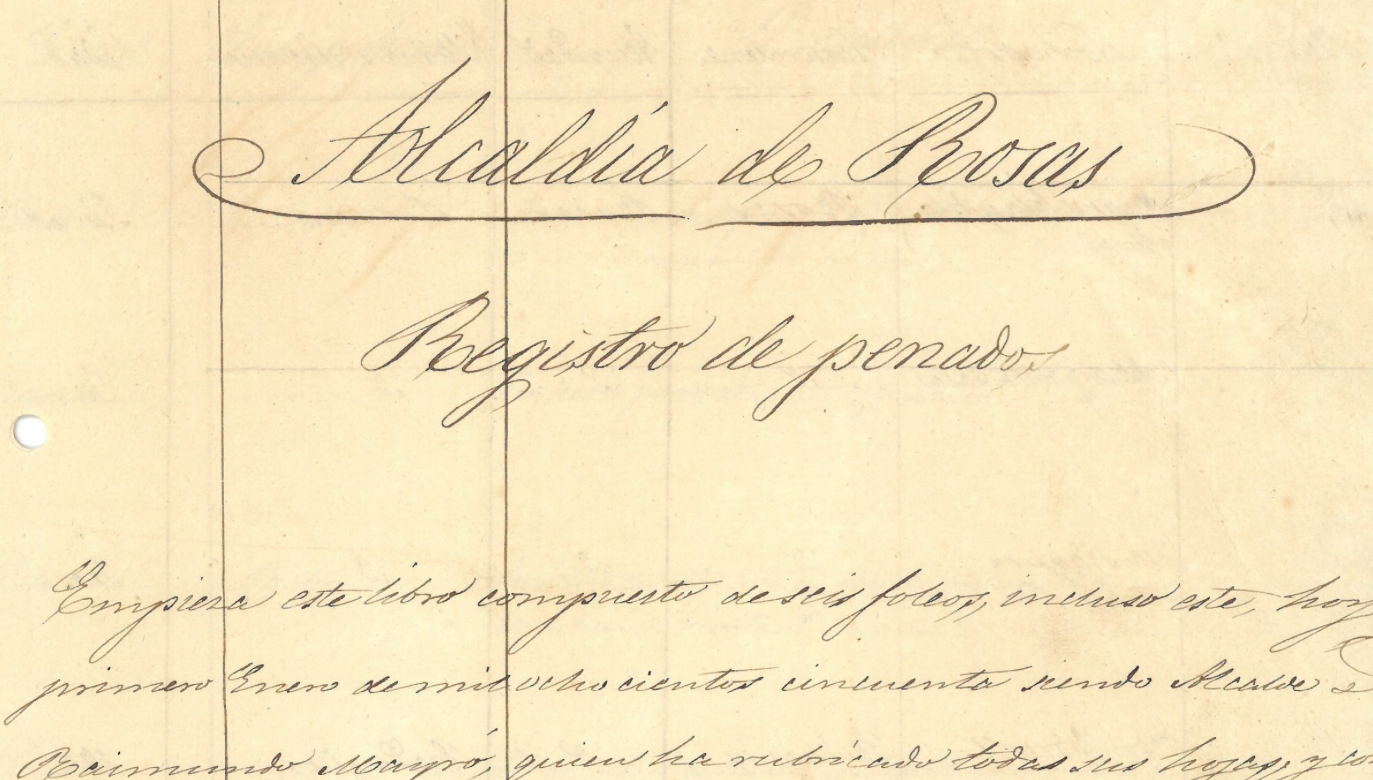 Alcaldía de Rosas
Registro de penados
Empieza este libro compuesto de seis foleos, incluso este, hoy
primero Enero de mil ocho cientos cincuenta siendo Alcalde
Raimundo Mayró, quien ha rubricado todas sus hojas, y